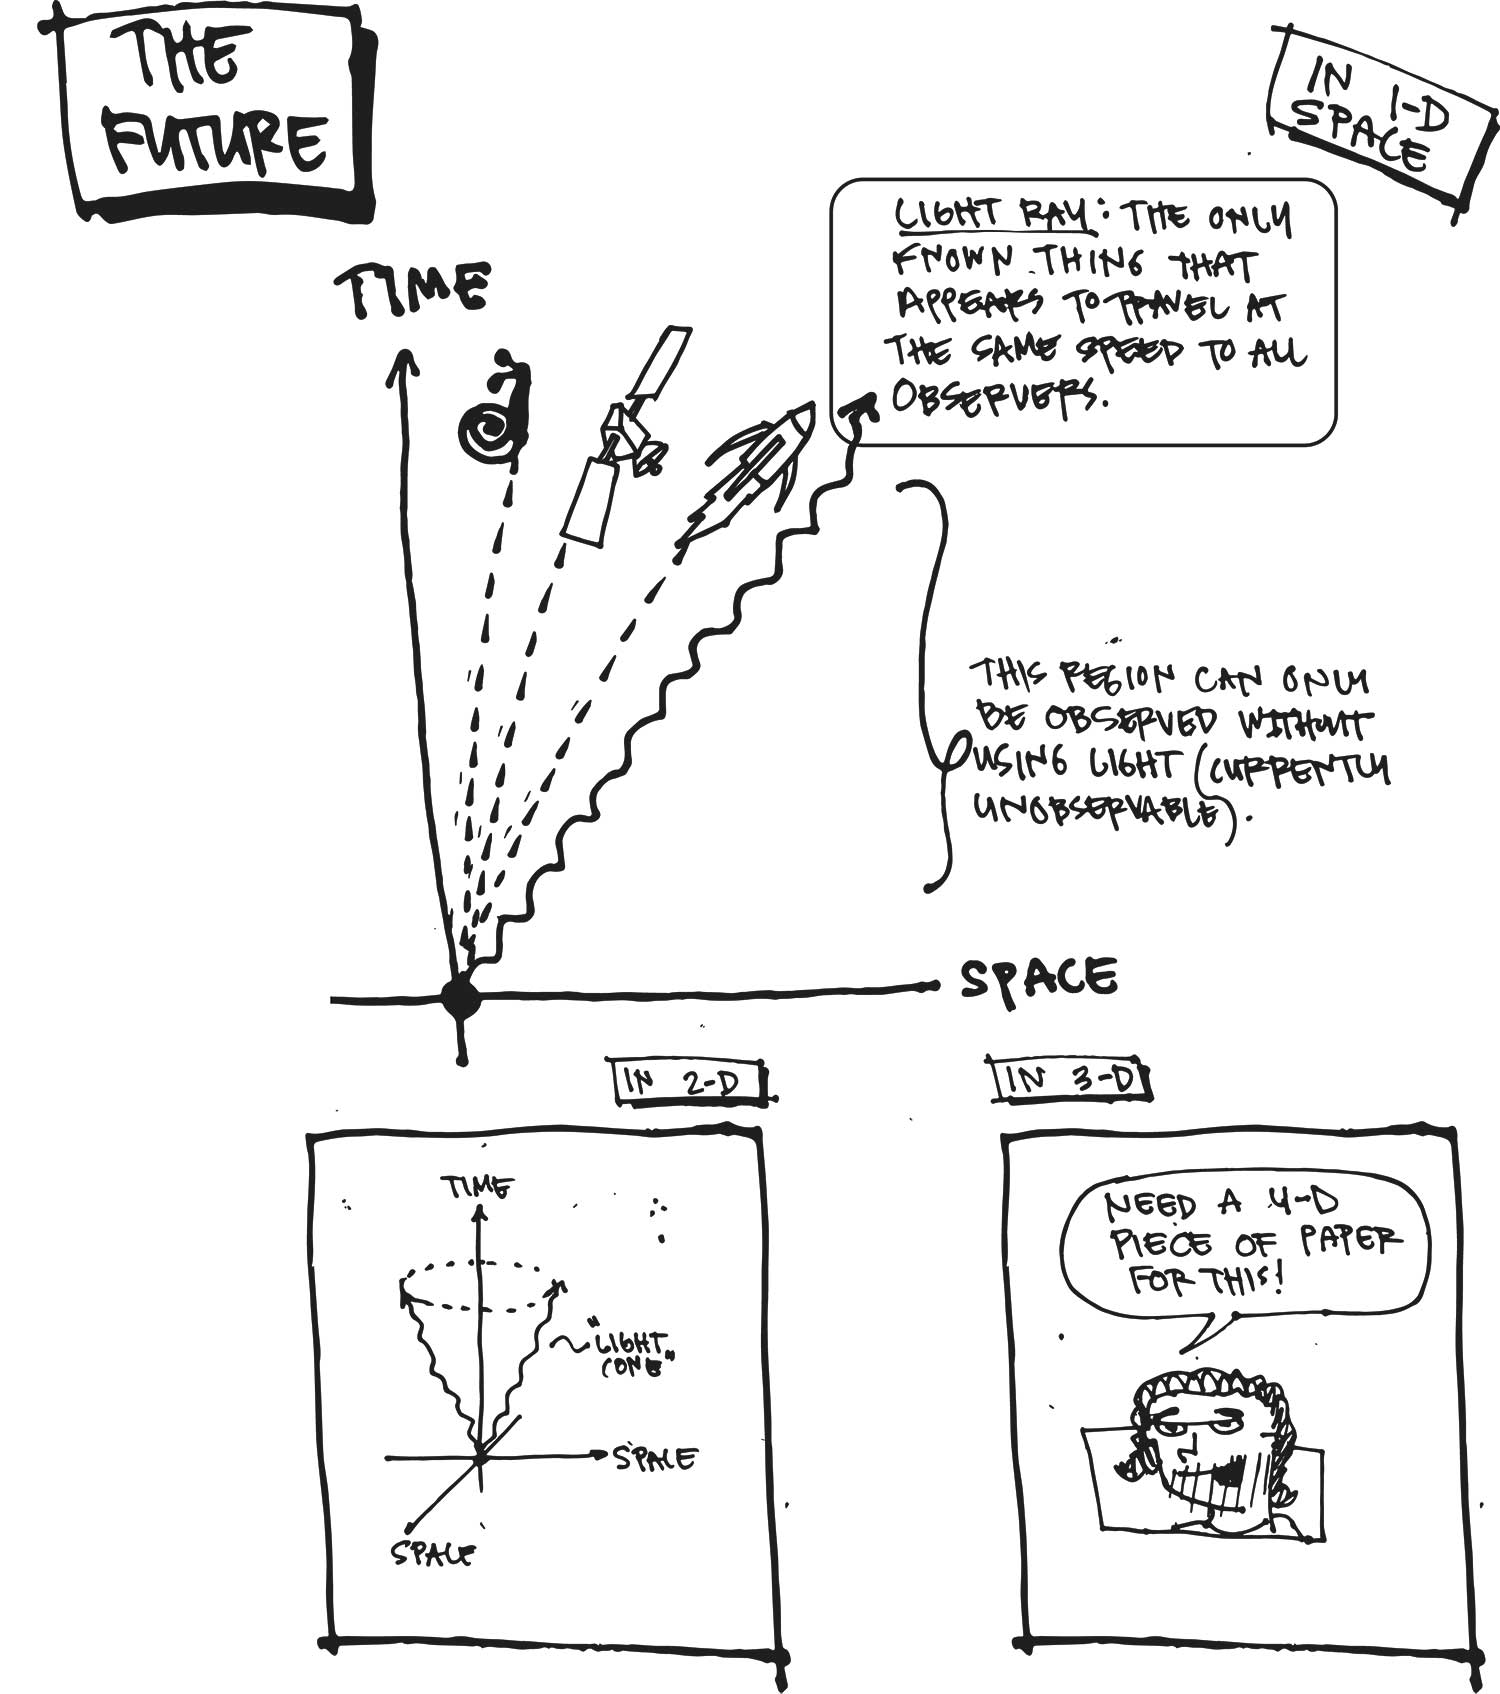 THE
FUTURE
IN 1-D
SPACE
LIGHT RAY: THE ONLY
KNOWN THING THAT
APPEARS TO TRAVEL AT
THE SAME SPEED TO ALL
OBSERVERS.
TIME
THIS REGION CAN ONLY
BE OBSERVED WITHOUT
USING LIGHT (CURRENTLY
UNOBSERVABLE).
SPACE
IN 2-D
TIME
"LIGHT
CONE"
SPACE
SPACE
IN 3-D
NEED A 4-D
PIECE OF PAPER
FOR THIS!